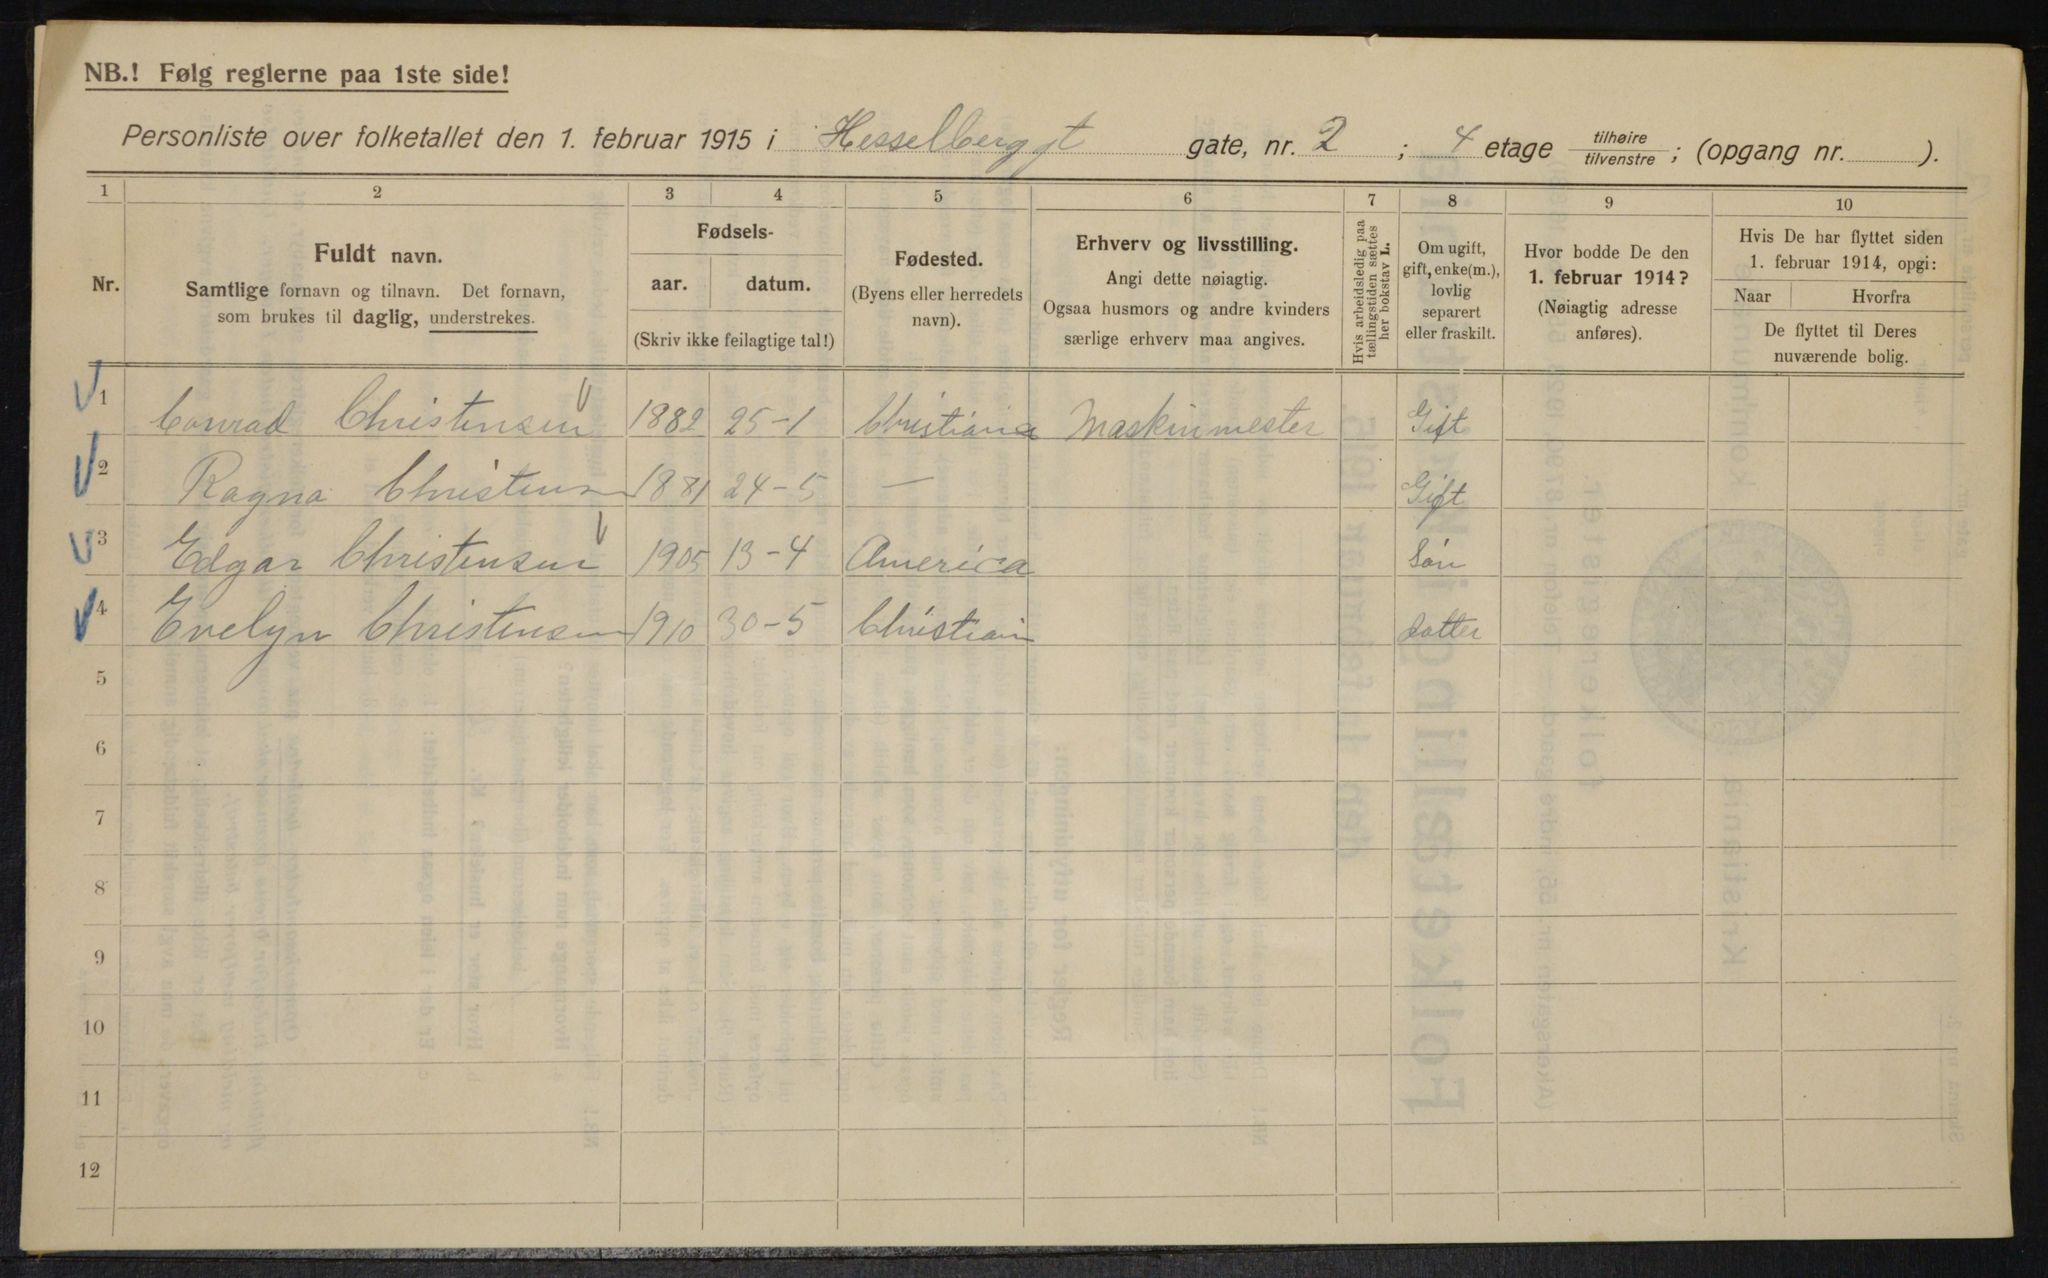 NB.! Følg reglerne paa 1ste side!
Personliste over folketallet den 1. februar 1915 i Hesselberggt gate, nr. 2 ; 4 etage tilhøire/tilvenstre ; (opgang nr. ).
1 2 3 4 5 6 7 8 9 10
Nr.
Fuldt navn.
Samtlige fornavn og tilnavn. Det fornavn,
som brukes til daglig, understrekes.
Fødsels-
aar. datum.
(Skriv ikke feilagtige tal!)
Fødested.
(Byens eller herredets
navn).
Erhverv og livsstilling.
Angi dette nøiagtig.
Ogsaa husmors og andre kvinders
særlige erhverv maa angives.
Hvis arbeidsledig paa
tællingstiden sættes
her bokstav L.
Om ugift,
gift, enke(m.),
lovlig
separert
eller fraskilt.
Hvor bodde De den
1. februar 1914?
(Nøiagtig adresse
anføres).
Hvis De har flyttet siden
1. februar 1914, opgi:
Naar Hvorfra
De flyttet til Deres
nuværende bolig.
1 Conrad Christensen 1882 25-1 Christiania Maskinmester Gift
2 Ragna Christensen 1881 24-5 — Gift
3 Edgar Christensen 1905 13-4 America Søn
4 Evelyn Christensen 1910 30-5 Christiania datter
5
6
7
8
9
10
11
12